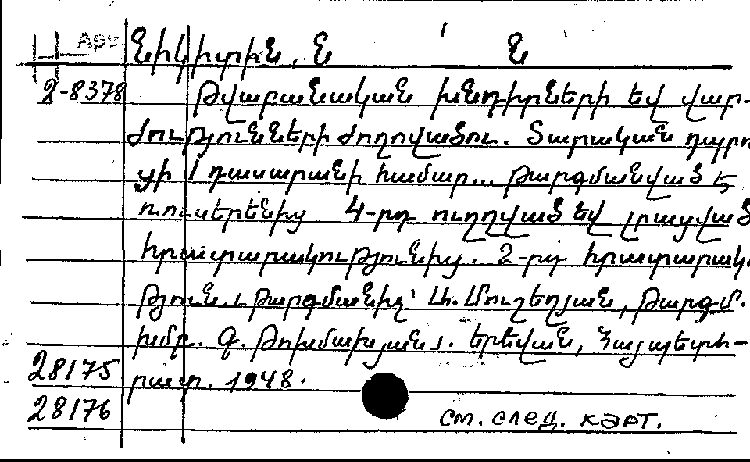 Арм Նիկիտին, Ն Ն
2-8378 Թվաբանական խնդիրների եվ վար-
ժությունների ժողովածու. Տարական դպրո
ցի 1 դասարանի համար... Թարգմանված է
ռուսերենից 4-րդ ուղղված եվ լրացված
հրատարակությունից. 2-րդ հրատարակ
թյուն. Թարգմանիչ՝ Ա. Մուշեղյան, Թարգմ.
խմբ. Գ. Թոխմախյան. Երեվան, Հայպետհ-
28175 րատ. 1948.
28176 см. след. карт.